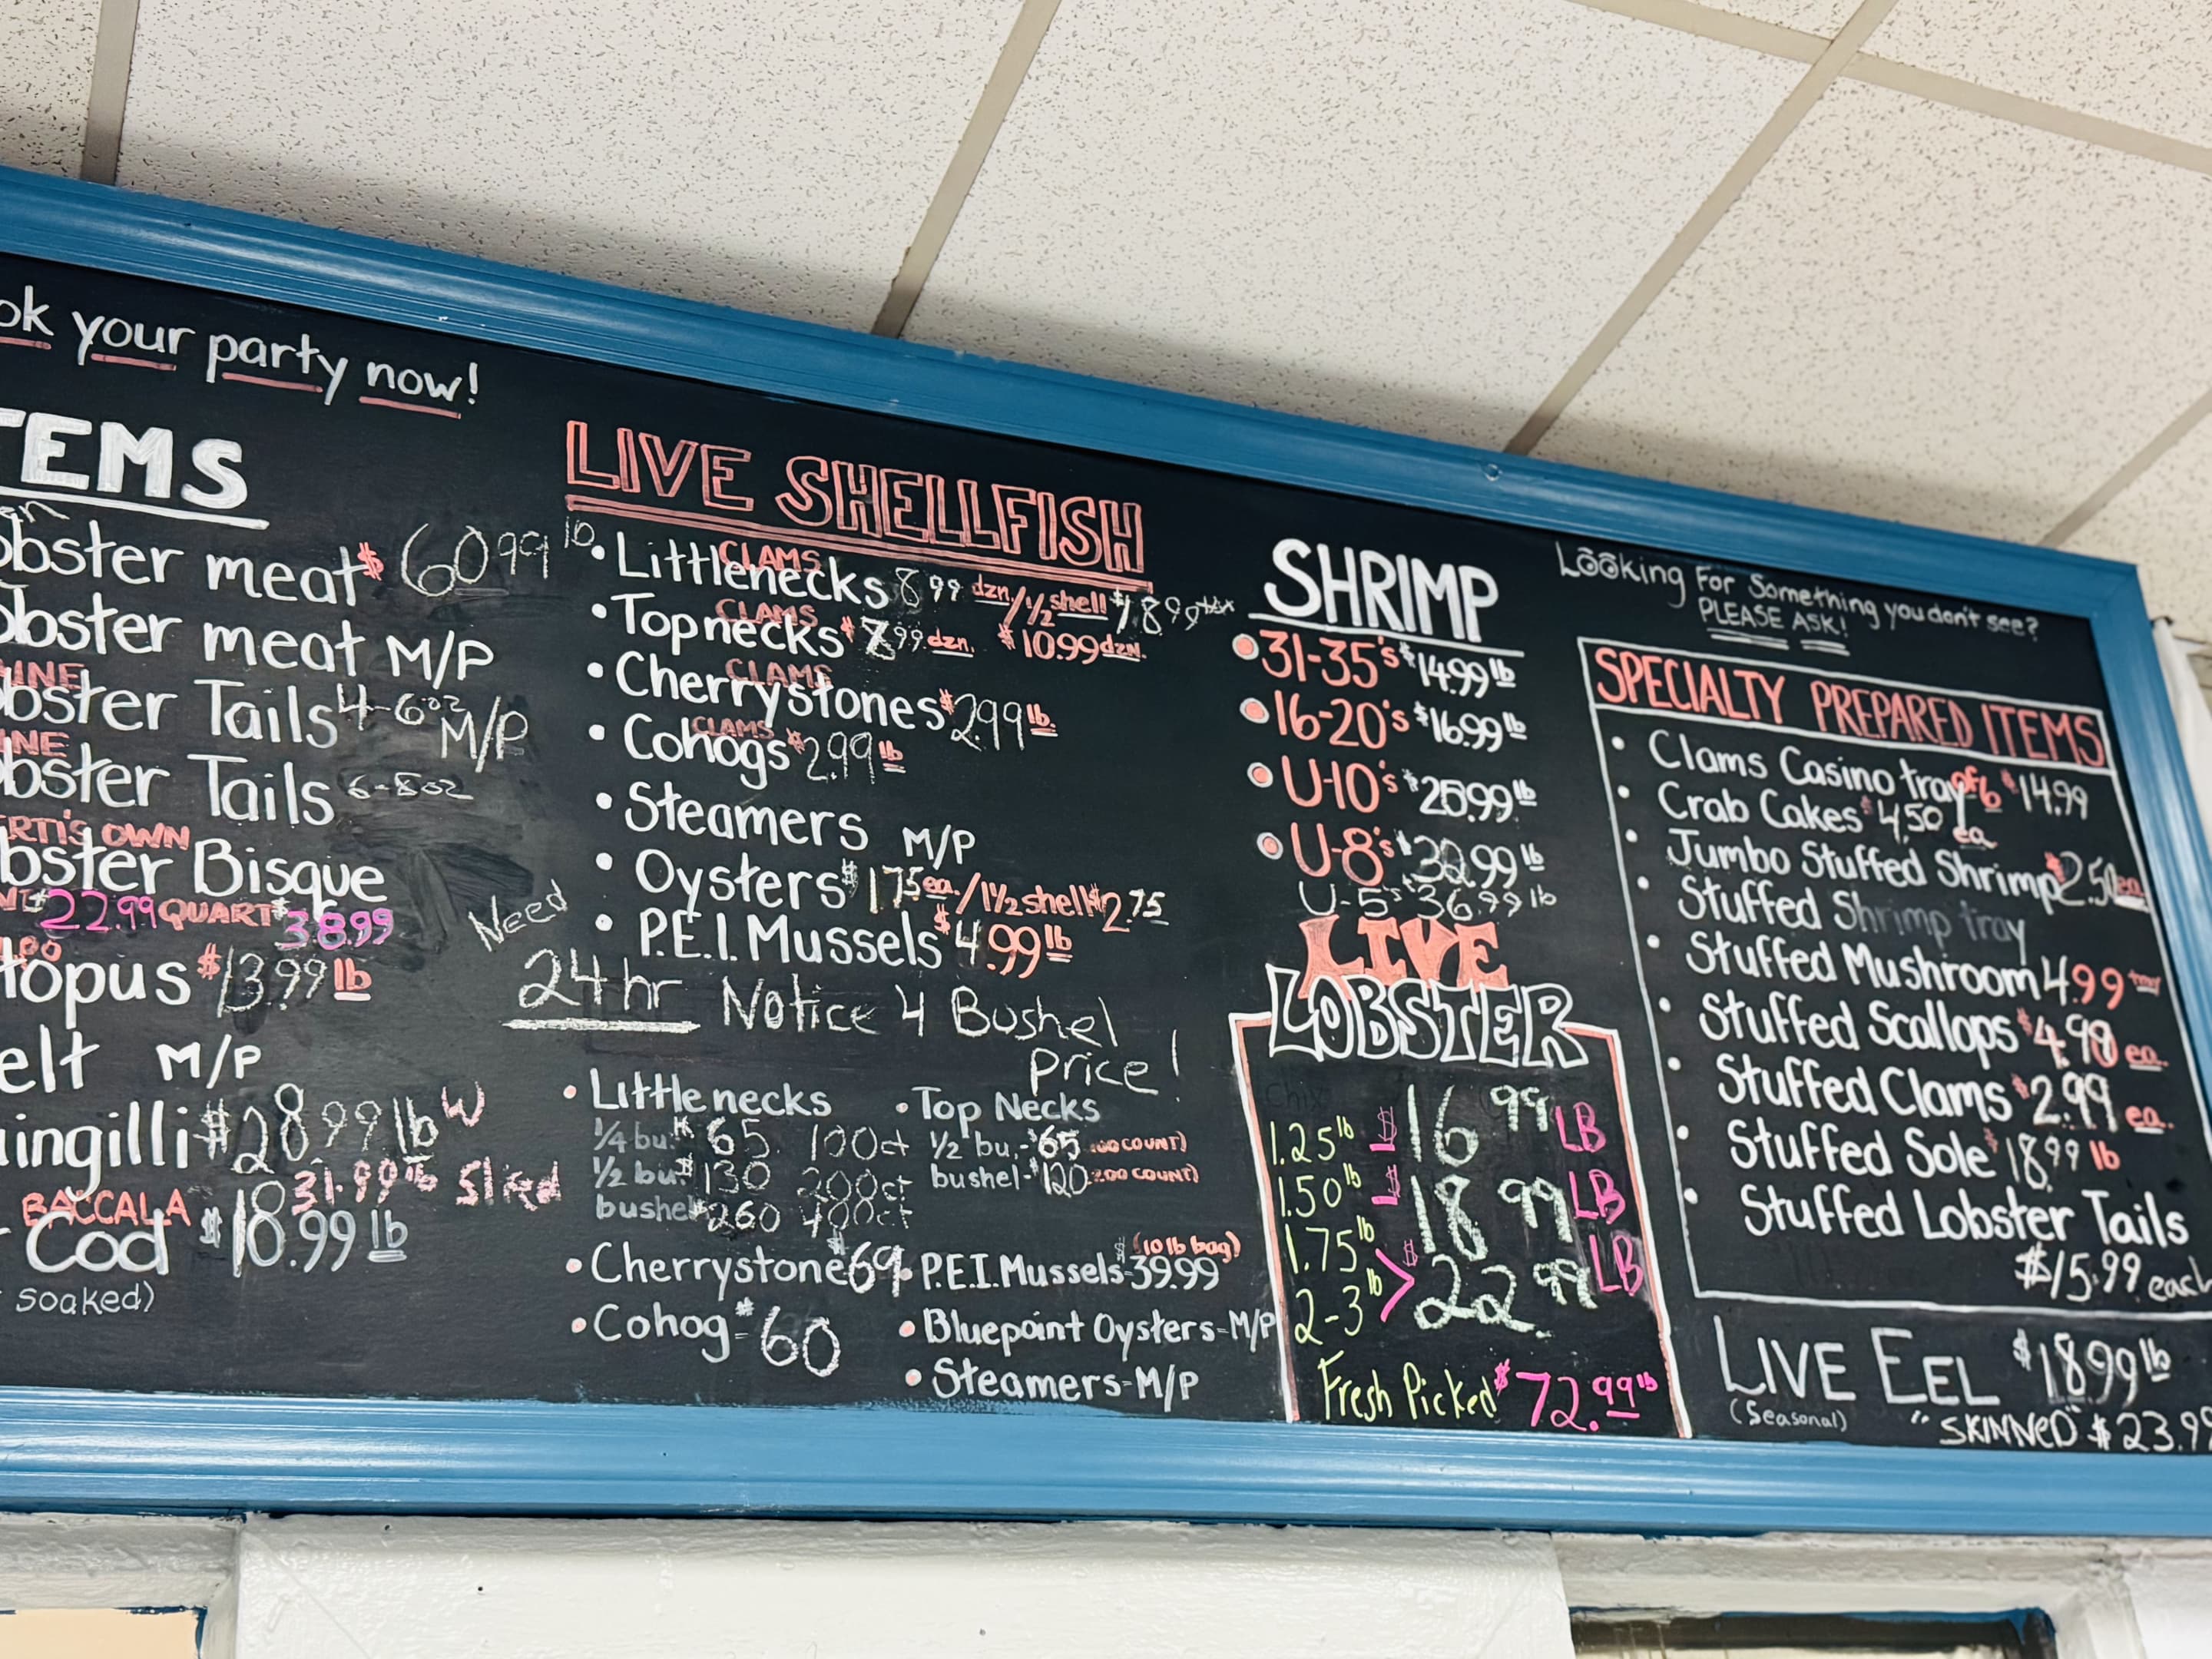 ok your party now!
TEMS
lobster meat $60.99 lb
lobster meat M/P
INE
lobster Tails 4-6oz M/P
INE
lobster Tails 6-8oz
ERTI'S OWN
bster Bisque
$22.99 QUART $38.99
topus $13.99 lb
elt M/P
ingilli $28.99 lb W
31.99 lb Sliced
BACCALA
Cod $18.99 lb
soaked)
LIVE SHELLFISH
• Littlenecks CLAMS 8.99 dzn/1/2 shell
• Topnecks CLAMS $7.99 dzn. $10.99 dzn.
• Cherrystones CLAMS $2.99 lb.
• Cohogs CLAMS $2.99 lb
• Steamers M/P
• Oysters $1.75 ea./1/2 shell $2.75
• P.E.I. Mussels $4.99 lb
Need
24hr Notice 4 Bushel
price!
• Littlenecks
1/4 bu. 65 100ct
1/2 bu. $130 200ct
bushel $260 400ct
• Top Necks
1/2 bu.- $65 (100 COUNT)
bushel- $120 (200 COUNT)
• Cherrystone $69
• Cohog- $60
• P.E.I. Mussels- $39.99 (10 lb bag)
• Bluepoint Oysters- M/P
• Steamers- M/P
SHRIMP
• 31-35's $14.99 lb
• 16-20's $16.99 lb
• U-10's $25.99 lb
• U-8's $32.99 lb
U-5's $36.99 lb
LIVE
LOBSTER
Chix
1.25 lb $16.99 LB
1.50 lb $18.99 LB
1.75 lb
2-3 lb > $22.99 LB
Fresh Picked $72.99 lb
Looking For Something you don't see?
PLEASE ASK!
SPECIALTY PREPARED ITEMS
• Clams Casino tray of 6 $14.99
• Crab Cakes $4.50 ea
• Jumbo Stuffed Shrimp $2.50 ea
• Stuffed Shrimp tray
• Stuffed Mushroom 4.99 tray
• Stuffed Scallops $4.99 ea.
• Stuffed Clams $2.99 ea.
• Stuffed Sole $18.99 lb
• Stuffed Lobster Tails
$15.99 each
LIVE EEL $18.99 lb
(Seasonal)
"SKINNED" $23.99